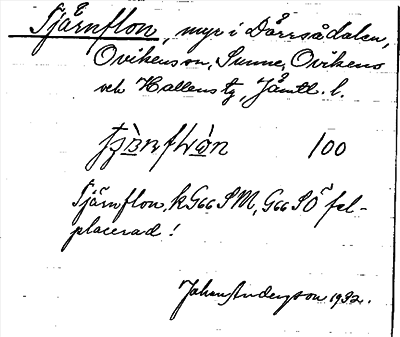 Tjårnflon, myr i Dörrsådalen,
Ovikens sn, Sunne, Ovikens
och Hallens tg, Jämtl. l.
100
Tjärnflon, k G66 SM, G66 SÖ fel-
placerad!
Johan Anderson 1932.